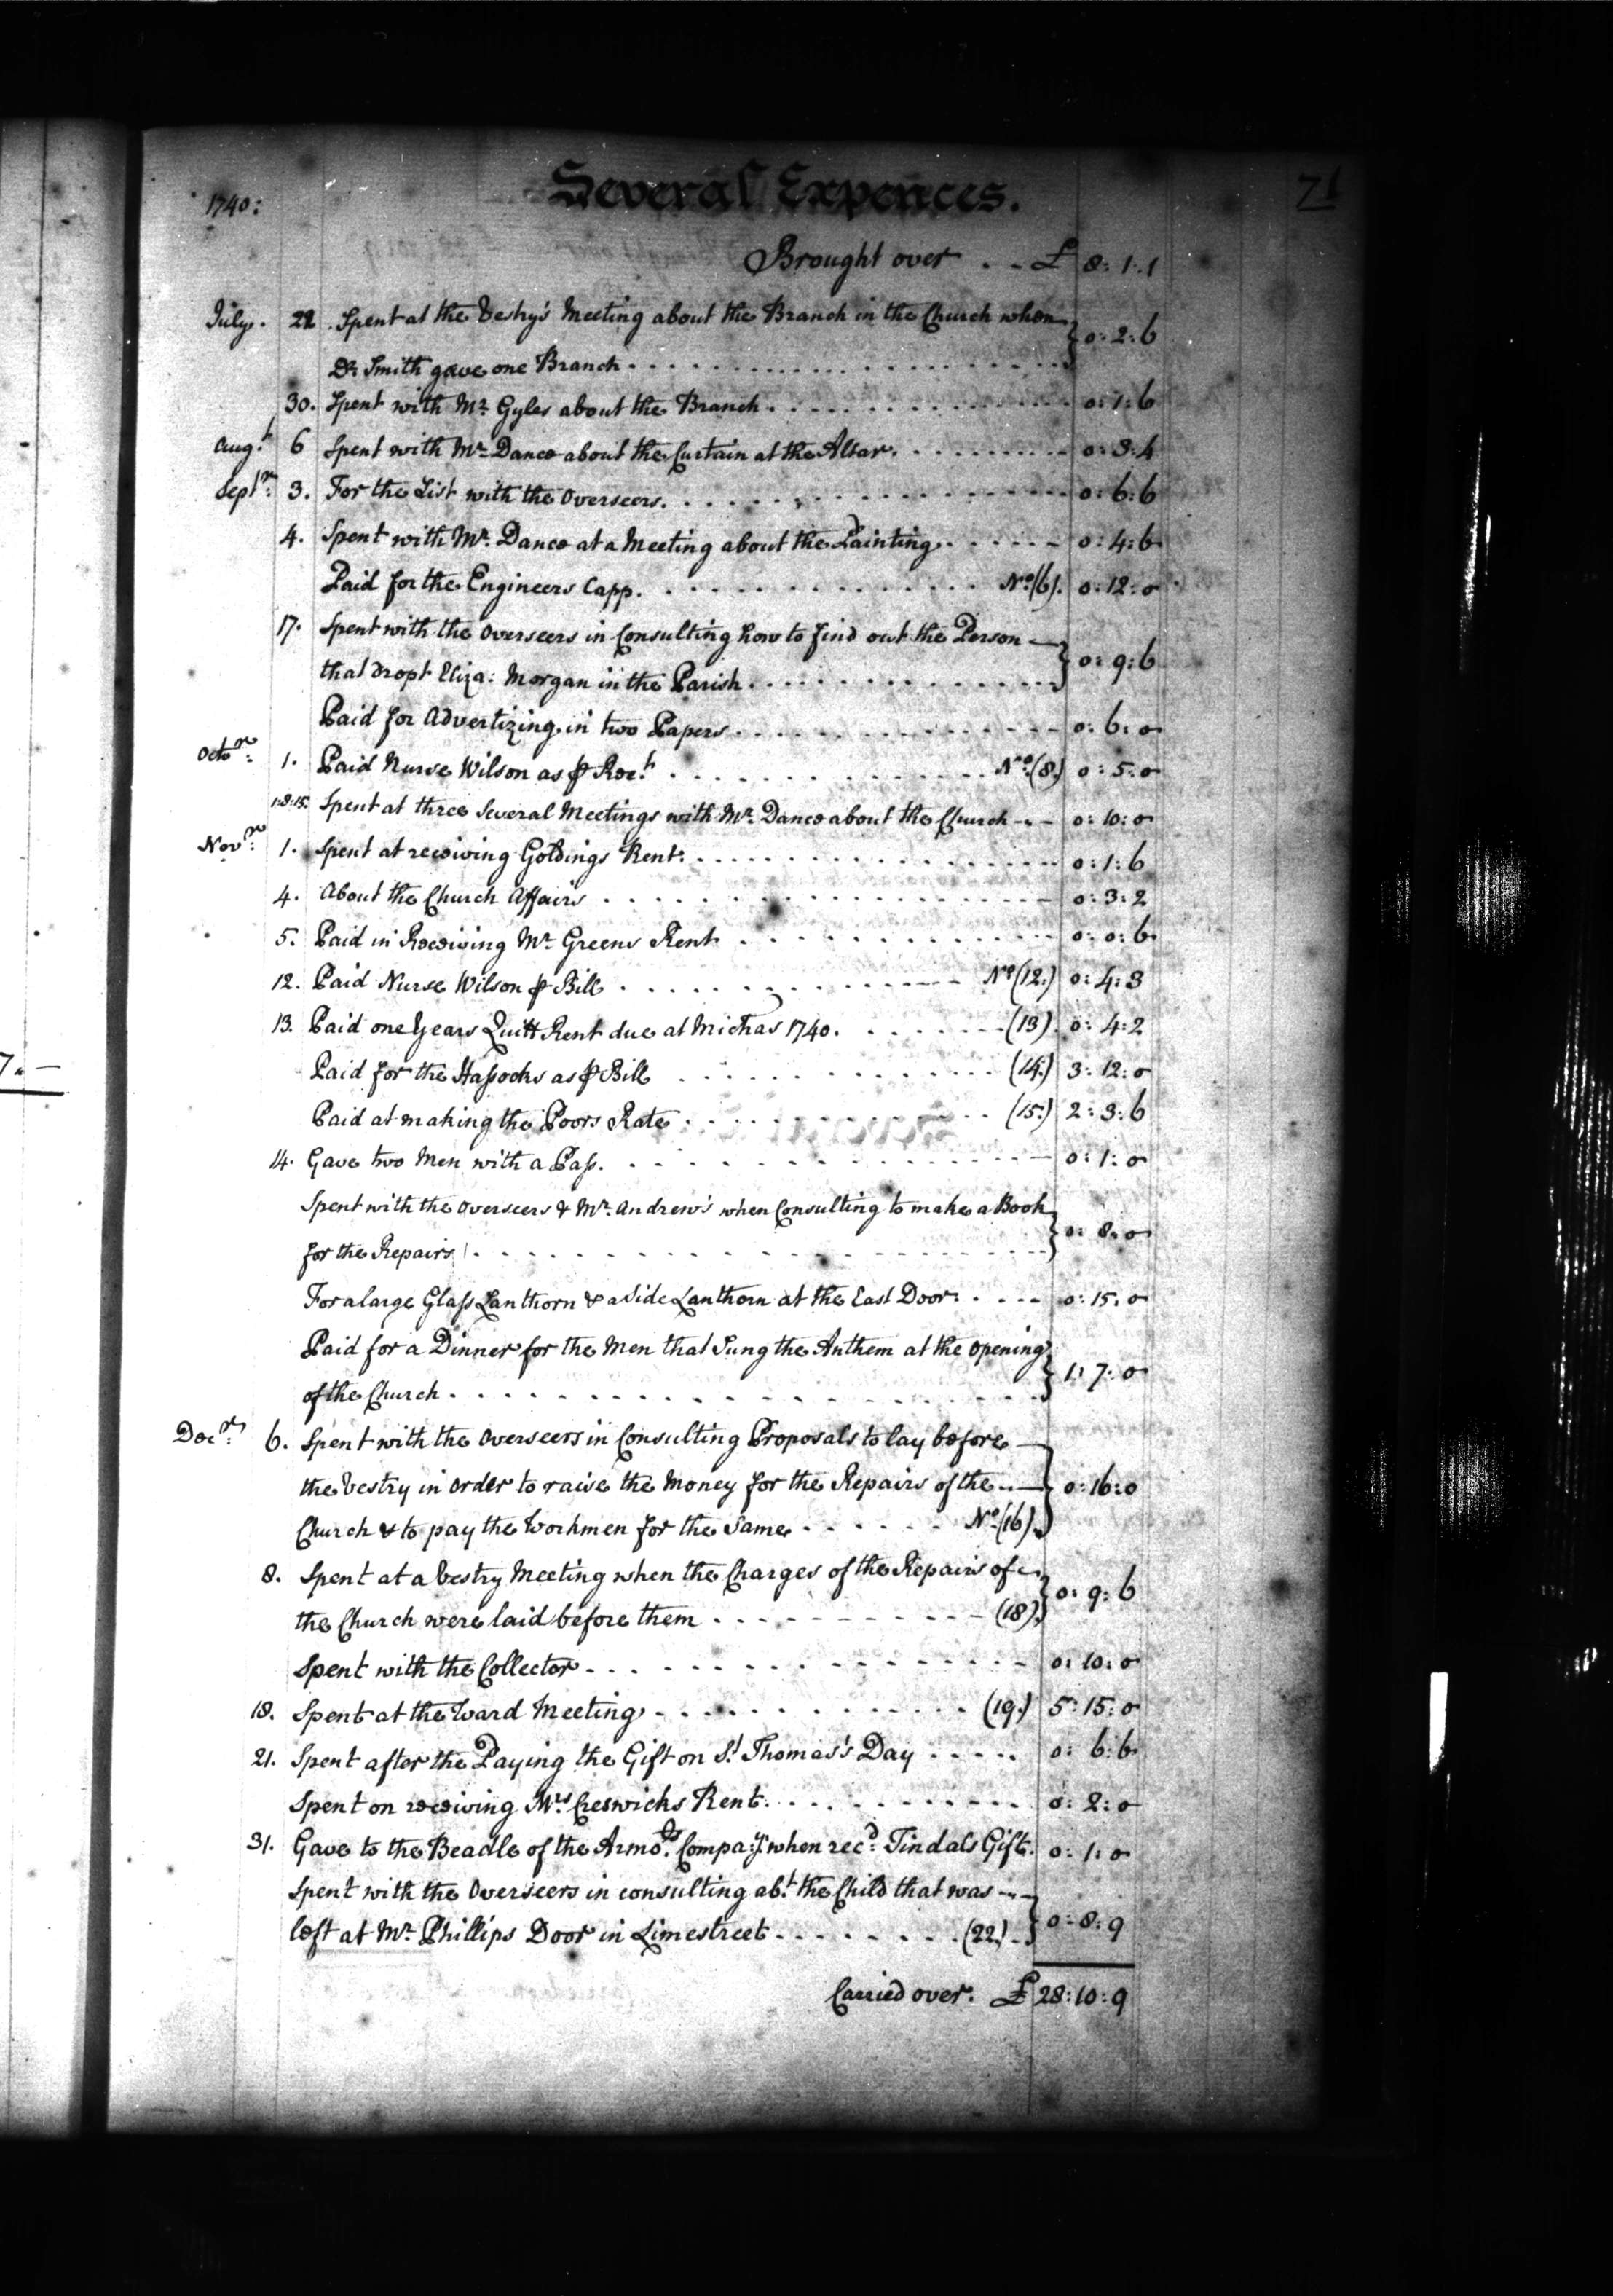 Several Expences.
71
1740:
Brought over . . - £ 8: 1: 1
July. 22 Spent at the Vestry's Meeting about the Branch in the Church when
Dr. Smith gave one Branch - 0: 2: 6
30. Spent with Mr. Gyles about the Branch - 0: 1: 6
Augt. 6 Spent with Mr. Dance about the Curtain at the Altar. - 0: 3: 4
Septr. 3. For the List with the Overseers. - 0: 6: 6
4. Spent with Mr. Dance at a Meeting about the Painting. - 0: 4: 6
Paid for the Engineers Capp. - No. (6). 0: 12: 0
17. Spent with the Overseers in Consulting how to find out the Person
that Dropt Eliza: Morgan in the Parish - 0: 9: 6
Paid for Advertizing in two Papers - 0: 6: 0
Octor. 1. Paid Nurse Wilson as ⅌ Rect. - No. (8.) 0: 5: 0
1:8:15. Spent at three Several Meetings with Mr. Dance about the Church - 0: 10: 0
Novr. 1. Spent at receiving Goldings Rent. - 0: 1: 6
4. About the Church Affairs - 0: 3: 2
5. Paid in Receiving Mr. Greens Rent - 0: 0: 6
12. Paid Nurse Wilson ⅌ Bill - No. (12.) 0: 4: 3
13. Paid one Years Quitt Rent due at Michas 1740. - (13) 0: 4: 2
Paid for the Hassocks as ⅌ Bill - (14.) 3: 12: 0
Paid at making the Poors Rate - (15:) 2: 3: 6
14. Gave two Men with a Pass. - 0: 1: 0
Spent with the Overseers & Mr. Andrew's when Consulting to make a Book
for the Repairs - 0: 8: 0
For a large Glass Lanthorn & a Side Lanthorn at the East Door. - 0: 15: 0
Paid for a Dinner for the Men that Sung the Anthem at the Opening
of the Church - 1: 7: 0
Decr. 6. Spent with the Overseers in Consulting Proposals to lay before
the Vestry in Order to raise the Money for the Repairs of the - 0: 16: 0
Church & to pay the Workmen for the Same - No. (16)
8. Spent at a Vestry Meeting when the Charges of the Repairs of - 0: 9: 6
the Church were laid before them - (18)
Spent with the Collector - 0: 10: 0
18. Spent at the Ward Meeting - (19.) 5: 15: 0
21. Spent after the Paying the Gift on St. Thomas's Day - 0: 6: 6
Spent on receiving Mrs. Creswicks Rent. - 0: 2: 0
31. Gave to the Beadle of the Armors. Compa:y. when recd. Tindals Gift. 0: 1: 0
Spent with the Overseers in consulting abt. the Child that was
left at Mr. Phillips Door in Limestreet - (22) 0: 8: 9
Carried over. £ 28: 10: 9